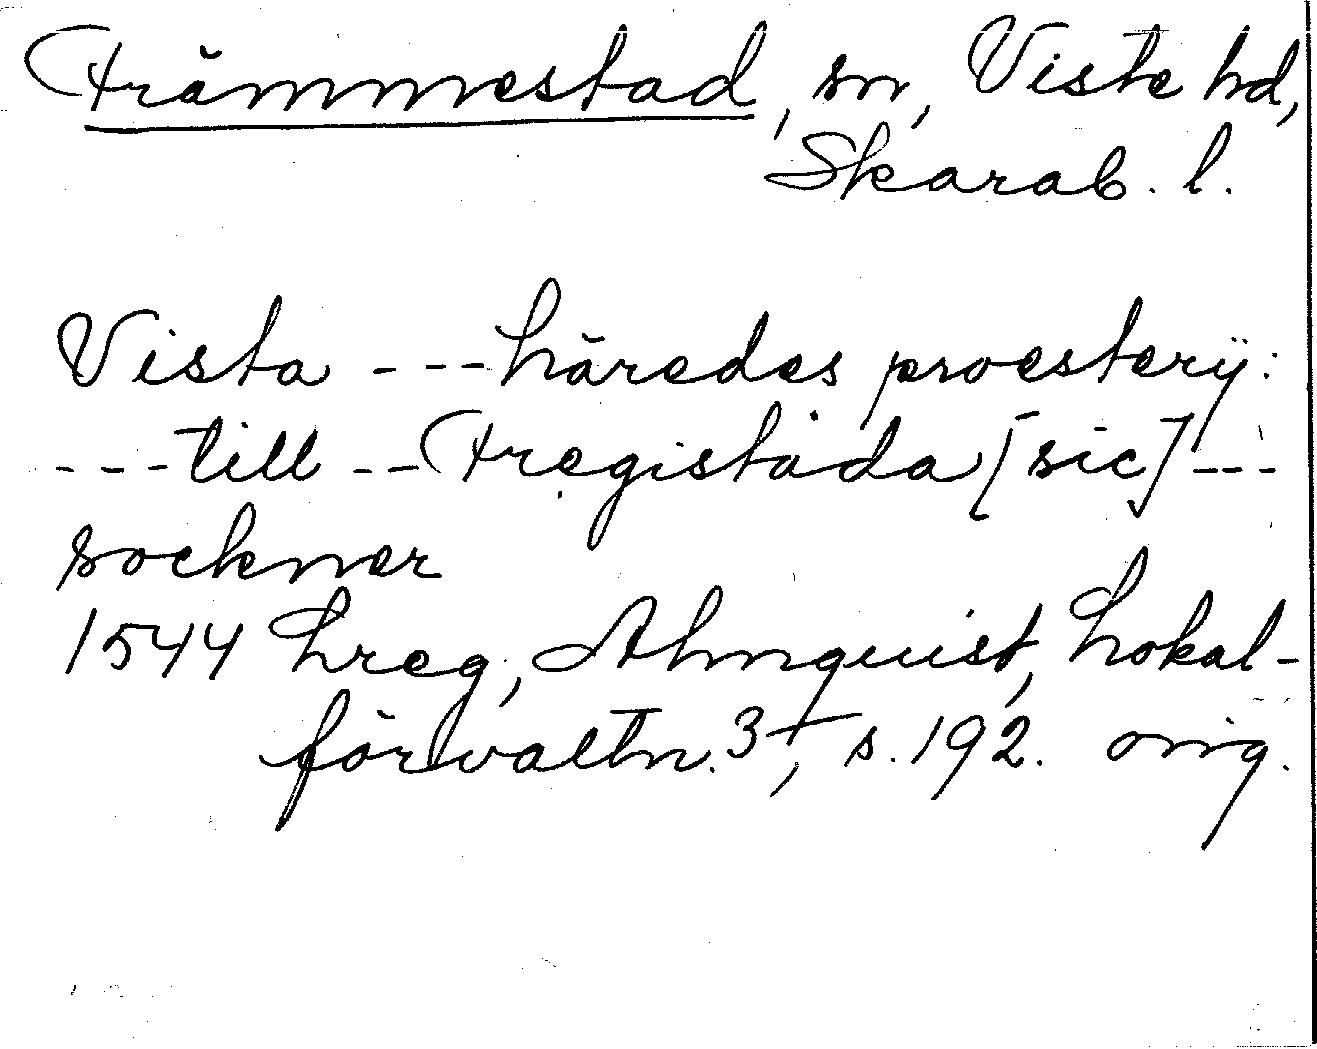 Främmestad, sn, Viste hd,
Skarab. l.
Vista - - - häredes proesterij:
- - - till - - Fregistada [sic] - - -
sockner
1544 Lreg, Almquist, Lokal-
förvaltn. 3, s. 192. orig.